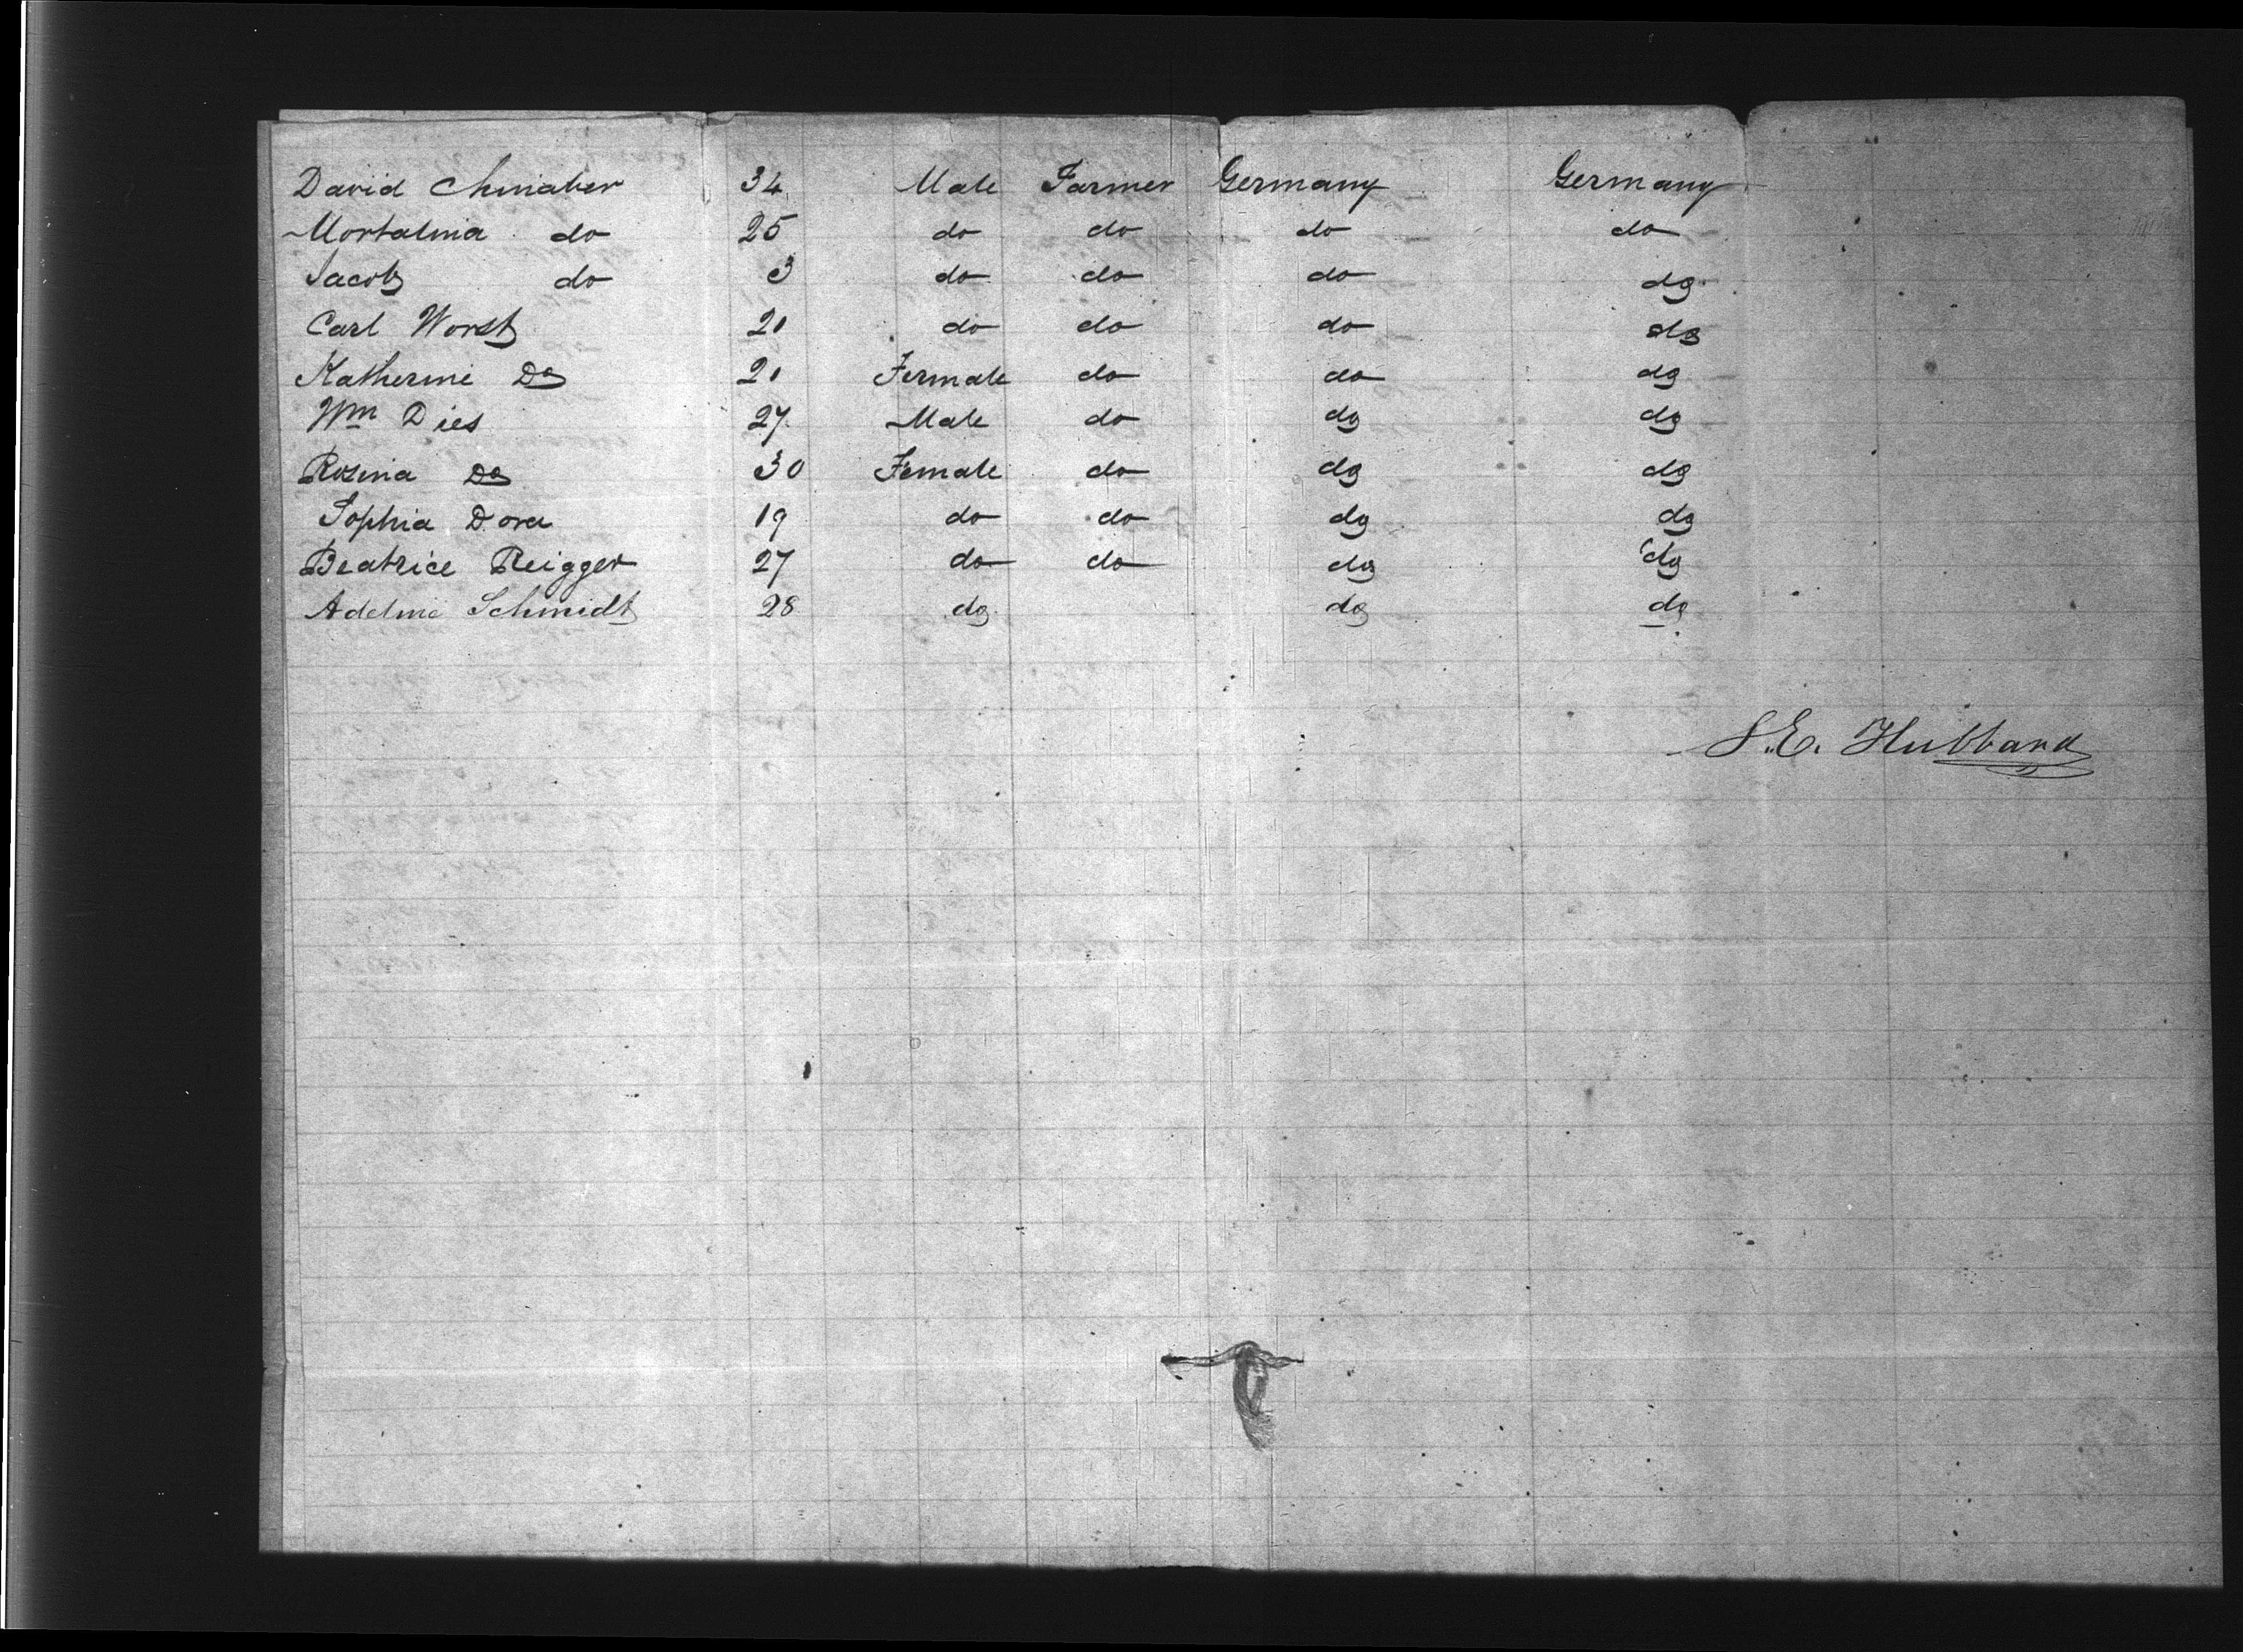 David Chmaber 34 Male Farmer Germany Germany
Mortalina do 25 do do do do
Jacob do 3 do do do do
Carl Worst 21 do do do do
Katherine Do 21 Fermale do do do
Wm Dies 27 Male do do do
Rosina Do 30 Female do do do
Sophia Dora 19 do do do do
Beatrice Reigger 27 do do do do
Adeline Schmidt 28 do do do
S.E. Hubbard